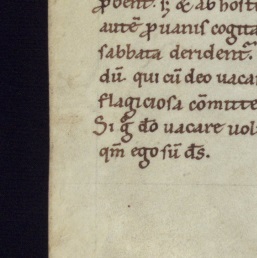 ꝓbent̄. sꝫ & ab hosti
autē ꝓ uanis cogita
sabbata derident᷑.
dū qui cū deo uacar
flagiciosa cōmitte
Si g̊ dō uacare uol
qm̄ ego sū d̄s.